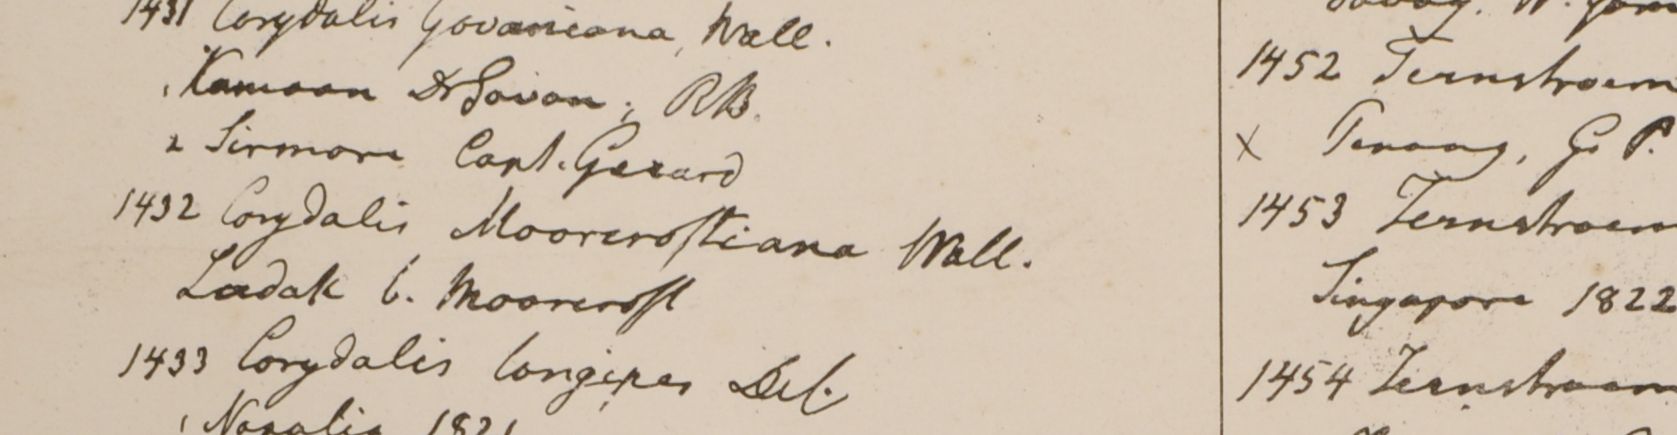 1431 Corydalis Govaniana, Wall.
1 Kamaon Dr Govan; RB.
2 Sirmore Capt. Gerard
1432 Corydalis Moorcroftiana Wall.
Ladak b. Moorcroft
1433 Corydalis longipes Del.
1 Napalia 1821
1452 Ternstroem
x Penang, G. P.
1453 Ternstroem
Singapore 1822
1454 Ternstroem